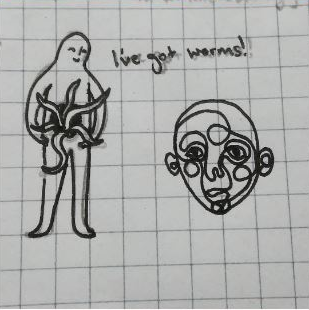 I've got worms!